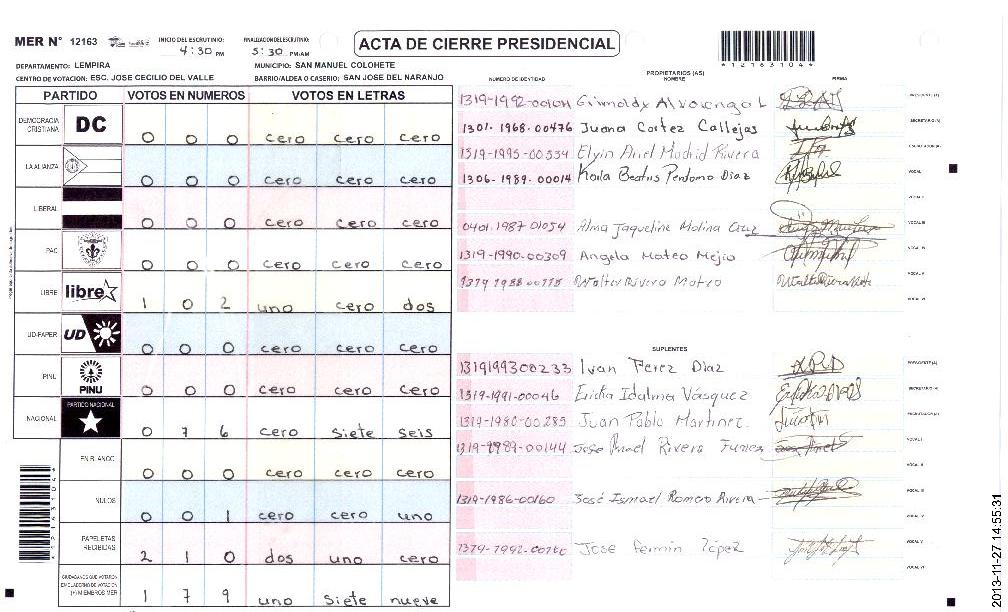 MER N° 12163
INICIO DEL ESCRUTINIO: 4:30 PM
FINALIZACION DEL ESCRUTINIO: 5:30 PM-AM
ACTA DE CIERRE PRESIDENCIAL
*12163104*
DEPARTAMENTO: LEMPIRA
MUNICIPIO: SAN MANUEL COLOHETE
CENTRO DE VOTACION: ESC. JOSE CECILIO DEL VALLE
BARRIO/ALDEA O CASERIO: SAN JOSE DEL NARANJO
PARTIDO VOTOS EN NUMEROS VOTOS EN LETRAS
DEMOCRACIA CRISTIANA DC 0 0 0 cero cero cero
LA ALIANZA 0 0 0 cero cero cero
LIBERAL 0 0 0 cero cero cero
PAC 0 0 0 cero cero cero
LIBRE libre 1 0 2 uno cero dos
UD-FAPER UD 0 0 0 cero cero cero
PINU PINU 0 0 0 cero cero cero
NACIONAL PARTIDO NACIONAL 0 7 6 cero siete seis
EN BLANCO 0 0 0 cero cero cero
NULOS 0 0 1 cero cero uno
PAPELETAS RECIBIDAS 2 1 0 dos uno cero
CIUDADANOS QUE VOTARON EN CUADERNO DE VOTACION (+) MIEMBROS MER 1 7 9 uno siete nueve
*12163104*
PROPIETARIOS (AS)
NUMERO DE IDENTIDAD NOMBRE FIRMA
PRESIDENTE (A)
1301-1968-00476 Juana Cortez Callejas SECRETARIO (A)
1319-1995-00534 Elvin Ariel Madrid Rivera ESCRUTADOR (A)
1306-1989-00014 Karla Beatris Perdomo Diaz VOCAL I
VOCAL II
0401-1987-01054 Alma Jaqueline Molina Cruz VOCAL III
1319-1990-00309 Angela Mateo Mejia VOCAL IV
Walter Rivera Mateo VOCAL V
VOCAL VI
SUPLENTES
1319199300233 Ivan Perez Diaz PRESIDENTE (A)
1319-1991-00046 Ericka Idalma Vásquez SECRETARIO (A)
1319-1980-00285 Juan Pablo Martinez ESCRUTADOR (A)
1319-1989-00144 Jose Rivera Funez VOCAL I
VOCAL II
1319-1986-00160 José Ismael Romero Rivera VOCAL III
VOCAL IV
Jose Fermin López VOCAL V
VOCAL VI
2013-11-27 14:55:31